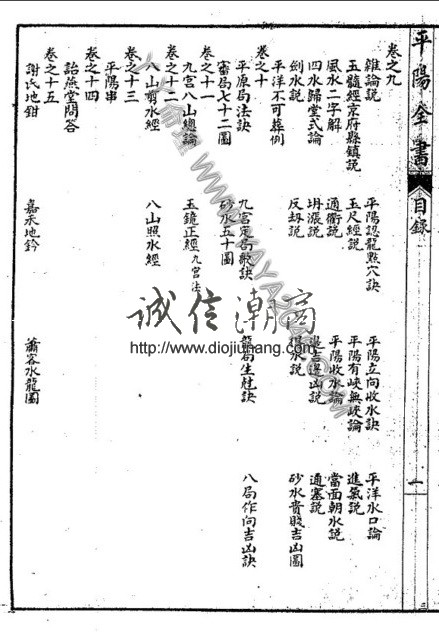 平陽全書 目錄 一
卷之九
雜論說 平陽認龍點穴訣 平陽立向收水訣 平洋水口論
玉髓經京府縣鎮說 玉尺經說 平陽有峽無峽論 進氣說
風水二字解 通衢說 平陽收水論 當面朝水說
四水歸堂式論 坍漲說 逆說 通塞說
劍水說 反刼說 得水說 砂水貴賤吉凶圖
平洋不可葬例
卷之十
平原局法訣 九宮定局歌訣 龍局生尅訣 八局作向吉凶訣
審局七十二圖 砂水五十圖
卷之十一
九宮八山總論 玉鏡正經九宮法
卷之十二
八山剪水經 八山照水經
卷之十三
平陽串
卷之十四
詒燕堂問答
卷之十五
謝氏地鉗 嘉禾地鈐 蕭客水龍圖
誠信潮商
http://www.diojiuhang.com